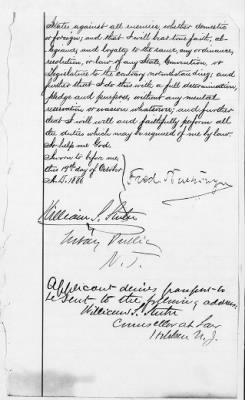 States against all enemies, whether domestic
or foreign; and that I will bear true faith, al-
legiance and loyalty to the same, any ordinance,
resolution, or law of any State, Convention, or
Legislature to the contrary notwithstanding; and
further that I do this with a full determination,
pledge and purpose, without any mental
reservation or evasion whatsoever; and further
that I will well and faithfully perform all
the duties which may be required of me by law.
So help me God.
Sworn to before me,
this 19th day of October
A.D. 1886
Fred
William S.
Notary Public
N.J.
Applicant desires passport to
be sent to the following address
William S.
Counsellor at Law
Hoboken N.J.